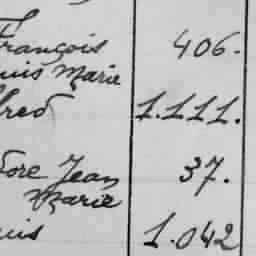 François 406.
uis Marie
fred 1.111.
dore Jean 37.
Marie
uis 1.042